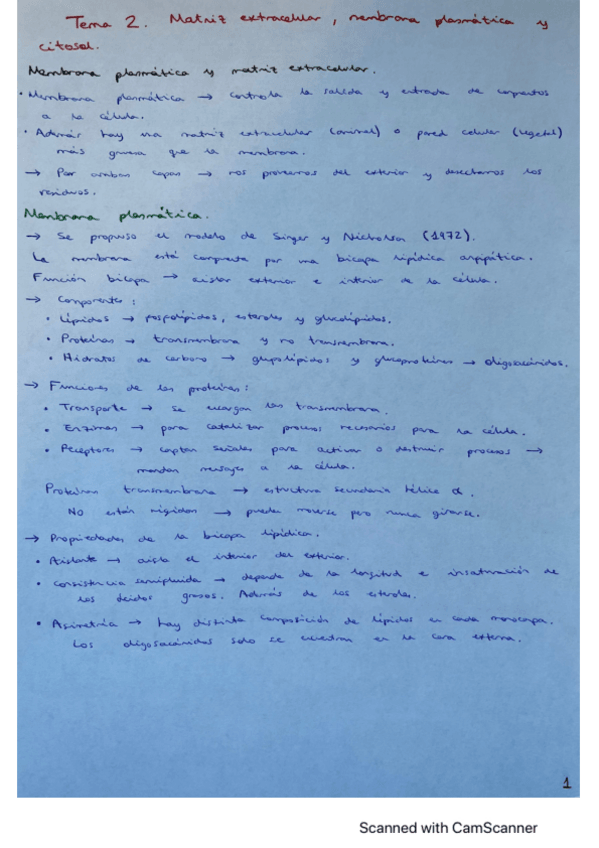 Tema 2. Matriz extracelular, membrana plasmática y
citosol.
Membrana plasmática y matriz extracelular.
• Membrana plasmática → controla la salida y entrada de compuestos
a la célula.
• Además hay una matriz extracelular (animal) o pared celular (vegetal)
más gruesa que la membrana.
→ Por ambas capas → nos proveemos del exterior y desechamos los
residuos.
Membrana plasmática.
→ Se propuso el modelo de Singer y Nicholson (1972).
La membrana está compuesta por una bicapa lipídica anfipática.
Función bicapa → aislar exterior e interior de la célula.
→ Componentes:
• Lípidos → fosfolípidos, esteroles y glucolípidos.
• Proteínas → transmembrana y no transmembrana.
• Hidratos de carbono → glucolípidos y glucoproteínas → oligosacáridos.
→ Funciones de las proteínas:
• Transporte → se encargan las transmembrana.
• Enzimas → para catalizar procesos necesarios para la célula.
• Receptores → captan señales para activar o destruir procesos →
mandan mensajes a la célula.
Proteínas transmembrana → estructura secundaria hélice α.
NO están rígidas → pueden moverse pero nunca girarse.
→ Propiedades de la bicapa lipídica.
• Aislante → aísla el interior del exterior.
• Consistencia semifluida → depende de la longitud e insaturación de
los ácidos grasos. Además de los esteroles.
• Asimetría → hay distinta composición de lípidos en cada monocapa.
Los oligosacáridos solo se encuentran en la cara externa.
1
Scanned with CamScanner